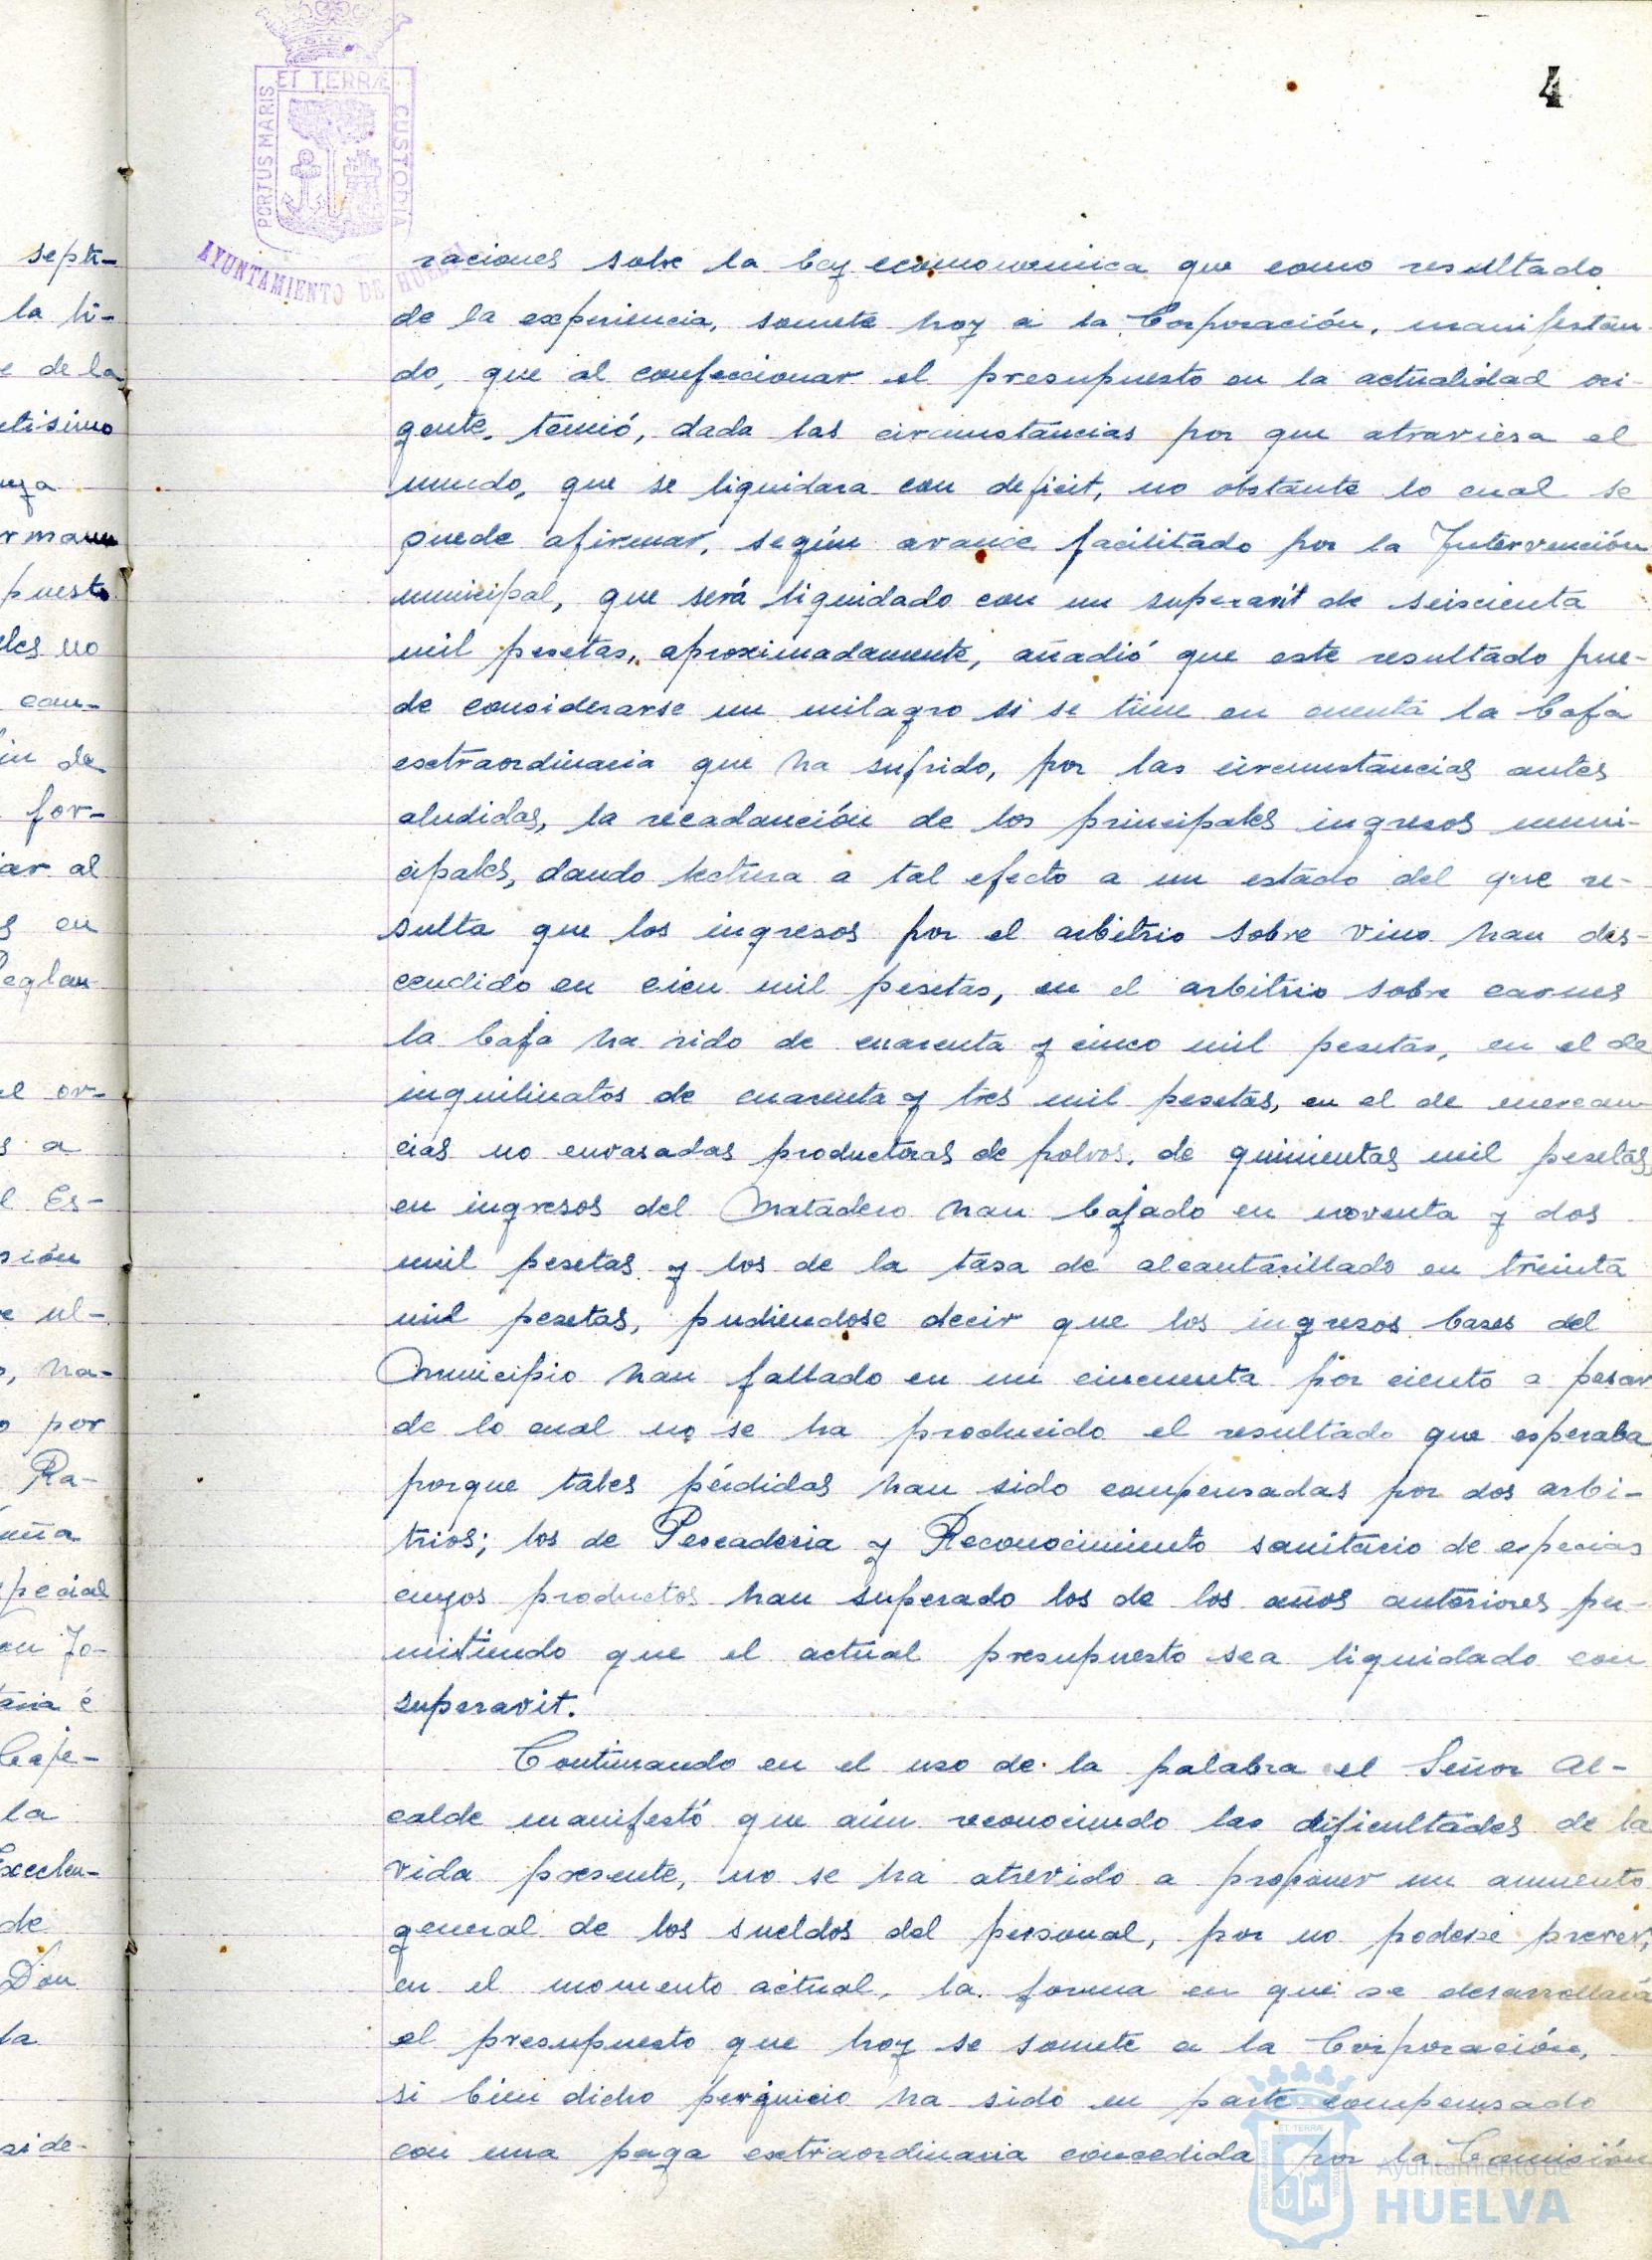 4
PORTUS MARIS ET TERRÆ CUSTODIA
AYUNTAMIENTO DE HUELVA
septi-
la hi-
e de la
ntisimo
puesto
les no
can-
in de
for-
iar al
s en
Reglan
el or-
s a
l Es-
sión
e ul-
, ha-
o por
Ra-
uña
special
on Jo-
taria é
Caje-
la
Excelen-
de
Don
la
side-
raciones sobre la Ley economomica que como resultado
de la experiencia, somete hoy a la Corporación, manifestan-
do, que al confeccionar el presupuesto en la actualidad vi-
gente, temió, dada las circunstancias por que atraviesa el
mundo, que se liquidara con deficit, no obstante lo cual se
puede afirmar, según avance facilitado por la Intervención
municipal, que será liquidado con un superavit de seiscienta
mil pesetas, aproximadamente, añadió que este resultado pue-
de considerarse un milagro si se tiene en cuenta la baja
extraordinaria que ha sufrido, por las circunstancias antes
aludidas, la recadanción de los principales ingresos muni-
cipales, dando lectura a tal efecto a un estado del que re-
sulta que los ingresos por el arbitrio sobre vino han des-
cendido en cien mil pesetas, en el arbitrio sobre carnes
la baja ha sido de cuarenta y cinco mil pesetas, en el de
inquilinatos de cuarenta y tres mil pesetas, en el de mercan-
cias no envasadas productoras de polvos, de quinientas mil pesetas,
en ingresos del Matadero han bajado en noventa y dos
mil pesetas y los de la tasa de alcantarillado en treinta
mil pesetas, pudiendose decir que los ingresos bases del
Municipio han fallado en un cincuenta por ciento a pesar
de lo cual no se ha producido el resultado que esperaba
porque tales pérdidas han sido compensadas por dos arbi-
trios; los de Pescaderia y Reconocimiento sanitario de especias
cuyos productos han superado los de los años anteriores per-
mitiendo que el actual presupuesto sea liquidado con
superavit.
Continuando en el uso de la palabra el Señor Al-
calde manifestó que aún reconociendo las dificultades de la
vida presente, no se ha atrevido a proponer un aumento
general de los sueldos del personal, por no poderse prever,
en el momento actual, la forma en que se desarrollará
el presupuesto que hoy se somete a la Corporación,
si bien dicho perjuicio ha sido en parte compensado
con una paga extraordinaria concedida por la Comisión
Ayuntamiento de
HUELVA